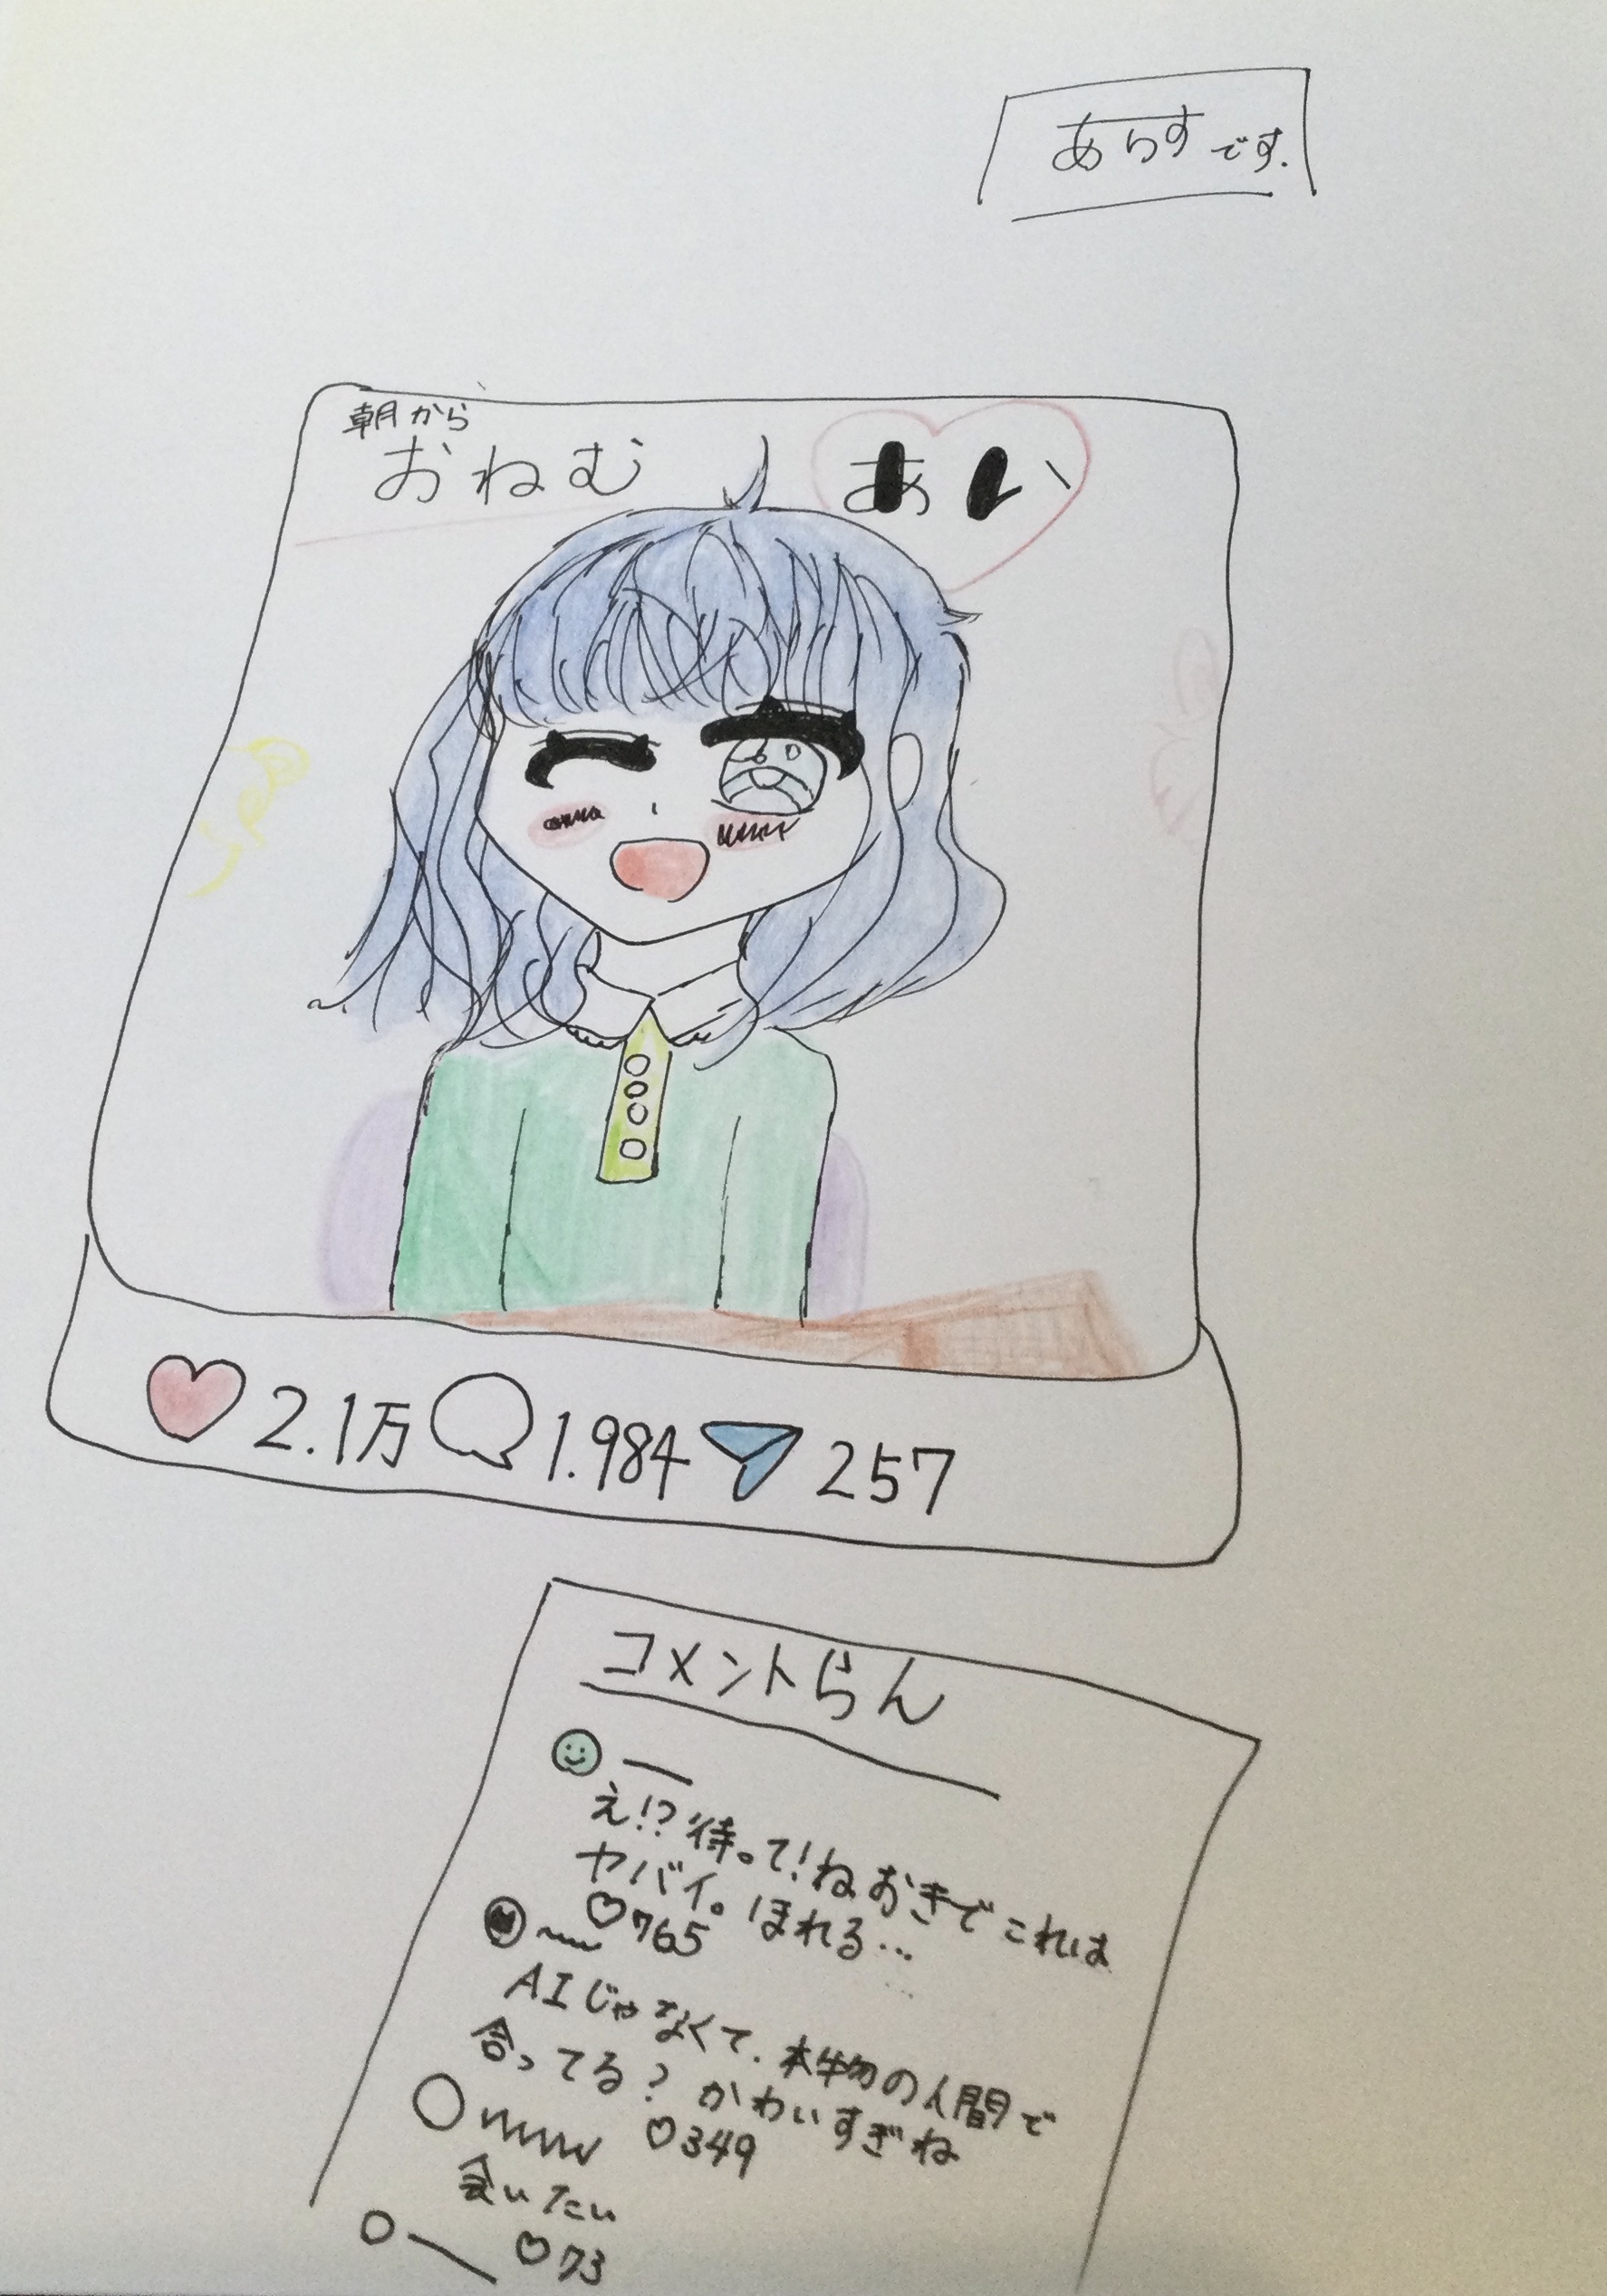 あらすです.
朝から
おねむ
あい
2.1万 1.984 257
コメントらん
え!?待って!ねおきでこれは
ヤバイ。ほれる...
♡765
AIじゃなくて.本物の人間で
合ってる?かわいすぎね
♡349
会いたい
♡73